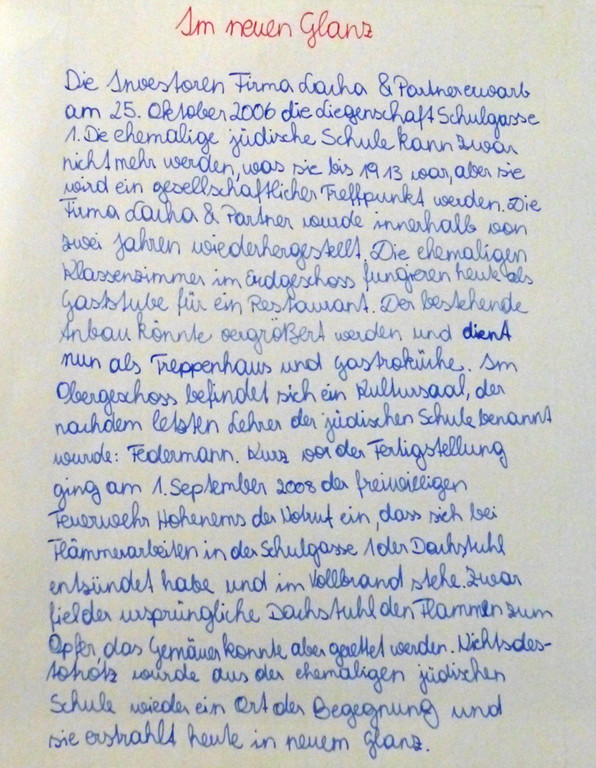 Im neuen Glanz
Die Investoren Firma Lacha & Partner erwarb
am 25. Oktober 2006 die Liegenschaft Schulgasse
1. Die ehemalige jüdische Schule kann zwar
nicht mehr werden, was sie bis 1913 war, aber sie
wird ein gesellschaftlicher Treffpunkt werden. Die
Firma Lacha & Partner wurde innerhalb von
zwei Jahren wiederhergestellt. Die ehemaligen
Klassenzimmer im Erdgeschoss fungieren heute als
Gaststube für ein Restaurant. Der bestehende
Anbau könnte vergrößert werden und dient
nun als Treppenhaus und Gastroküche. Im
Obergeschoss befindet sich ein Kultursaal, der
nach dem letzten Lehrer der jüdischen Schule benannt
wurde: Federmann. Kurz vor der Fertigstellung
ging am 1. September 2008 der freiwilligen
Feuerwehr Hohenems der Notruf ein, dass sich bei
Flämmerarbeiten in der Schulgasse 1 der Dachstuhl
entzündet habe und im Vollbrand stehe. Zwar
fiel der ursprüngliche Dachstuhl den Flammen zum
Opfer, das Gemäuer konnte aber gerettet werden. Nichtsdes-
totrotz wurde aus der ehemaligen jüdischen
Schule wieder ein Ort der Begegnung und
sie erstrahlt heute in neuem Glanz.